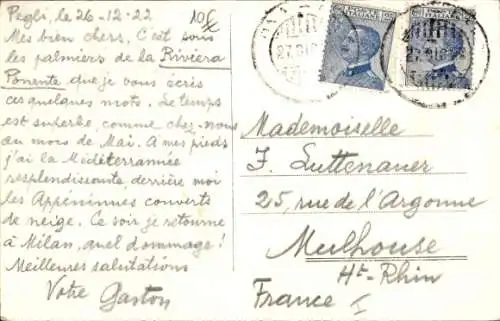 Pegli, le 26-12-22
10f
Mes bien chers. C'est sous
les palmiers de la Riviera
Ponente que je vous écris
ces quelques mots. Le temps
est superbe, comme chez-nous
au mois de Mai. A mes pieds
j'ai la Méditerrannée
resplendissante derrière moi
les Appeninnes converts
de neige. Ce soir je retourne
à Milan, quel dommage!
Meilleures salutations
Votre Gaston
ITALIANE
27.
27.
Mademoiselle
J. Luttenauer
25, rue de l'Argonne
Mulhouse
Ht-Rhin
France